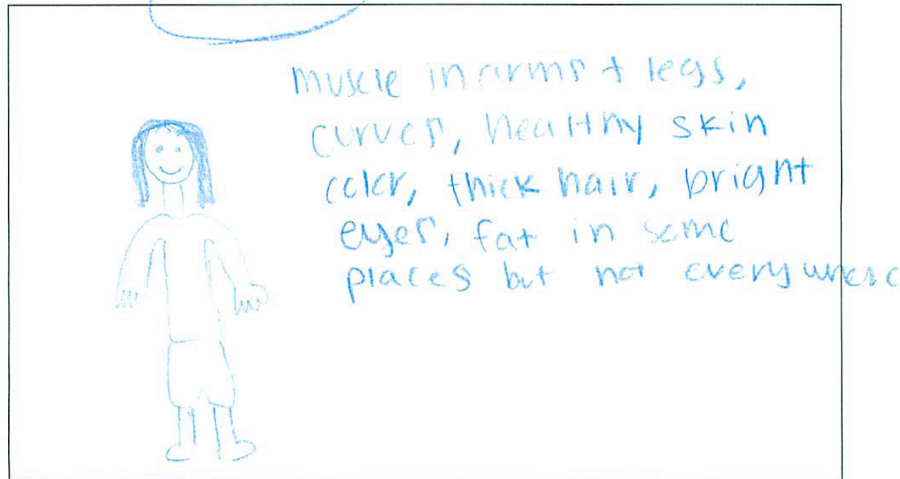 muscle in arms + legs,
curves, healthy skin
color, thick hair, bright
eyes, fat in some
places but not everywhere